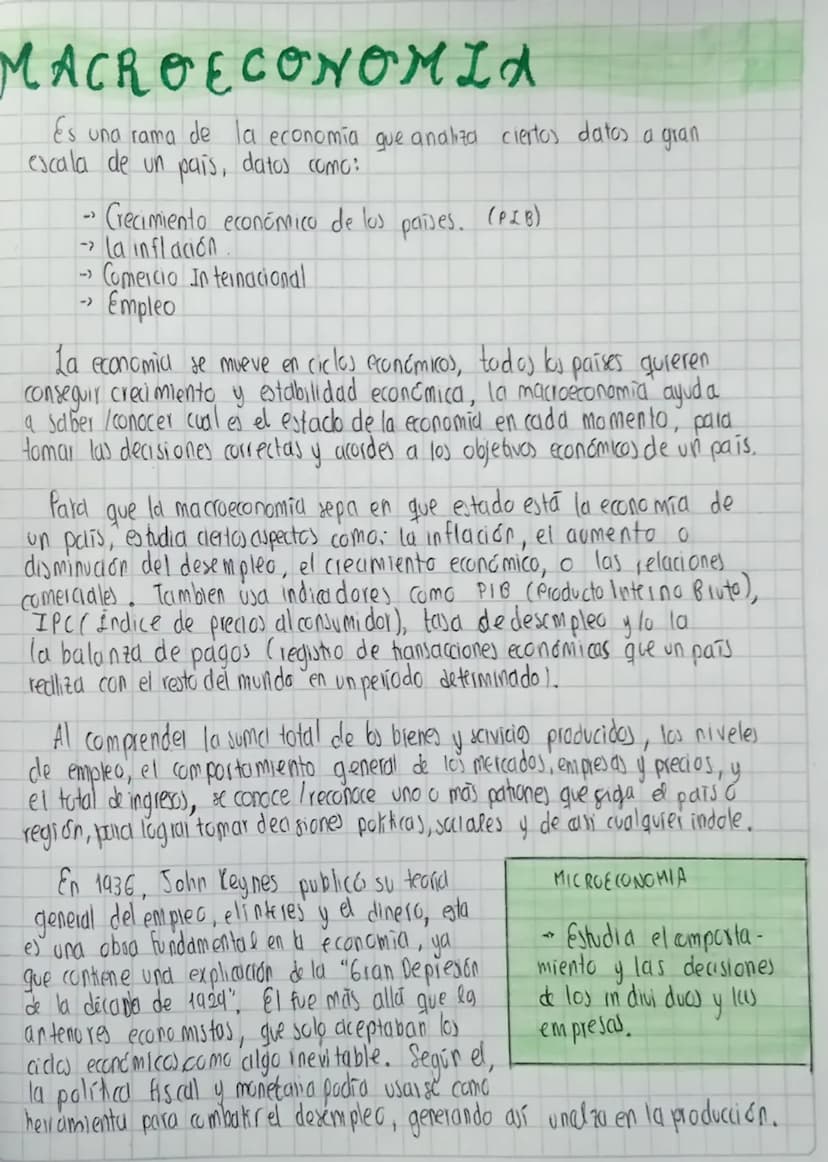 MACROECONOMIA
Es una rama de la economía que analiza ciertos datos a gran
escala de un país, datos como:
-> Crecimiento económico de los países. (PIB)
-> la inflación.
-> Comercio Internacional
-> Empleo
La economia se mueve en ciclos económicos, todos los países quieren
conseguir crecimiento y estabilidad económica, la macroeconomía ayuda
a saber /conocer cual es el estado de la economia en cada momento, para
tomar las decisiones correctas y acordes a los objetivos económicos de un país.
Para que la macroeconomía sepa en que estado está la economía de
un país, estudia ciertos aspectos como: la inflación, el aumento o
disminución del desempleo, el crecimiento económico, o las relaciones
comerciales. Tambien usa indicadores como PIB (Producto Interno Bruto),
IPC (Índice de precios al consumidor), tasa de desempleo y/o la
la balanza de pagos (registro de transacciones económicas que un país
realiza con el resto del mundo en un período determinado).
Al comprender la suma total de los bienes y servicio producidos, los niveles
de empleo, el comportamiento general de los mercados, empresas y precios, y
el total de ingresos, se conoce /reconoce uno o más patrones que siga el país o
región, para lograr tomar decisiones políticas, sociales y de casi cualquier indole.
En 1936, John Keynes publicó su teoría
general del empleo, el interes y el dinero, esta
es una obra fundamental en la economía, ya
que contiene una explicación de la "Gran Depresión
de la década de 1929". Él fue más allá que los
anteriores economistas, que solo aceptaban los
ciclos económicos como algo inevitable. Según el,
la política fiscal y monetaria podía usarse como
herramienta para combatir el desempleo, generando así un alza en la producción.
MICROECONOMIA
-> Estudia el comporta-
miento y las decisiones
de los individuos y las
empresas.